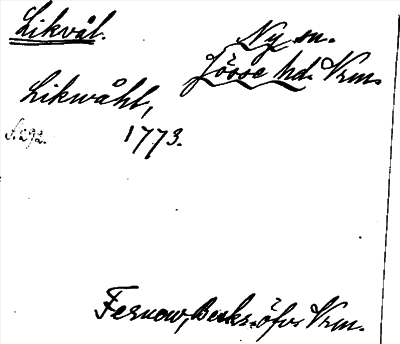 Likvål.
Ny sn.
Jösse hd. Vrm.
Likwåhl,
1773.
s. 292.
Fernow, Beskr. öfv. Vrm.